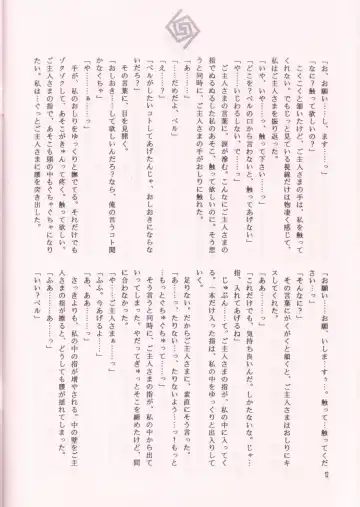 「お、お願い……します……っ」
「なに？触って欲しいの？」
こくこくと頷いたけど、ご主人さまの手は、私を触って
くれない。でもじっと見ている視線だけは物凄く感じて、
私はご主人さまを振り返った。
「いや、いや……っ、触って下さい……っ」
「どこを？ベルの口から言わないと、触ってあげない」
「や……いじわるしないで、ぇ……っ」
ご主人さまの言葉に、涙が滲む。こんなにご主人さまの
指でぬるぬるした私のあそこ、触って欲しいのに。そう思
うと同時に、ご主人さまの手がおしりに触れた。
「あぁ……っ」
「……だめだよ、ベル」
「え……？」
「ベルがしたいコトしてあげたんじゃ、おしおきにならな
いだろ？」
その言葉に、目を見開く。
「おしおきして欲しいんだろ？なら、俺の言うコト聞
かなくちゃ」
「や……ぁぁ……っ」
手が、私のおしりをゆっくりと撫でてる。それだけでも
ゾクゾクして、あそこがきゅんって疼く。触って欲しい。
ご主人さまの指で、あそこも頭の中もぐちゃぐちゃになり
たい。私は…ぐっとご主人さまに腰を突き出した。
「お願い……お願、いしま……すぅ……。触って……くだ
さい……っ」
「そんなに？」
その言葉にがくがくと頷くと、ご主人さまはおしりにキ
スしてくれた。
「ああ……っ」
「これだけでも、気持ち良いんだ。しかたないな。じゃ…
指、入れてあげるね」
つぷん……って、ご主人さまの指が、私の中に入ってく
る。一本だけ入った指は、私の中をゆっくりと出入りして
いく。
足りない。だからご主人さまに、素直にそう言った。
「あ……っ、たりない……っ、たりないよう……っ！もっ
と、もっとぐちゅぐちゅって……っ！」
そう言うと同時に、ご主人さまの指が、私の中から出て
いってしまった。やだってぎゅっとそこを締めたけど、間
に合わなかった。
「や……ご主人さまぁ……っ」
「ふふ、今あげるよ……っ」
「あ、ああ……っ」
さっきよりも、私の中の指が増やされる。中の壁をご主
人さまの指が擦ると、どうしても腰が揺れてしまった。
「ふぁ……あ……ぁ……っ」
「いい？ベル」